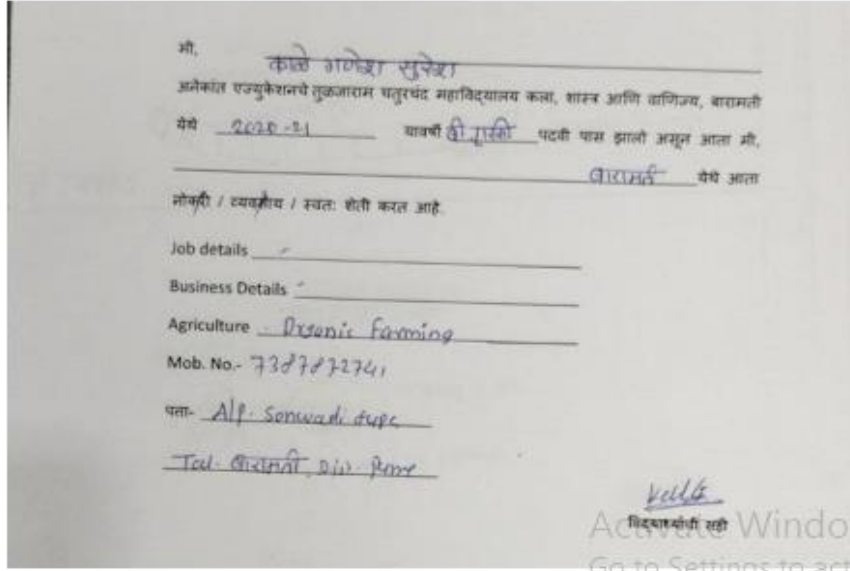 मी, काळे गणेश सुरेश
अनेकांत एज्युकेशनचे तुळजाराम चतुरचंद महाविद्यालय कला, शास्त्र आणि वाणिज्य, बारामती
येथे 2020-21 यावर्षी पदवी पास झालो असून आता मी,
बारामती येथे आता
नोकरी / व्यवसाय / स्वतः शेती करत आहे.
Job details
Business Details
Agriculture - Organic Farming
Mob. No.- 7387872741
पत्ता- A/p. Sonwadi supe
Tal. बारामती, Dis. Pune
विद्यार्थ्याची सही
Activate Windo
Go to Settings to act